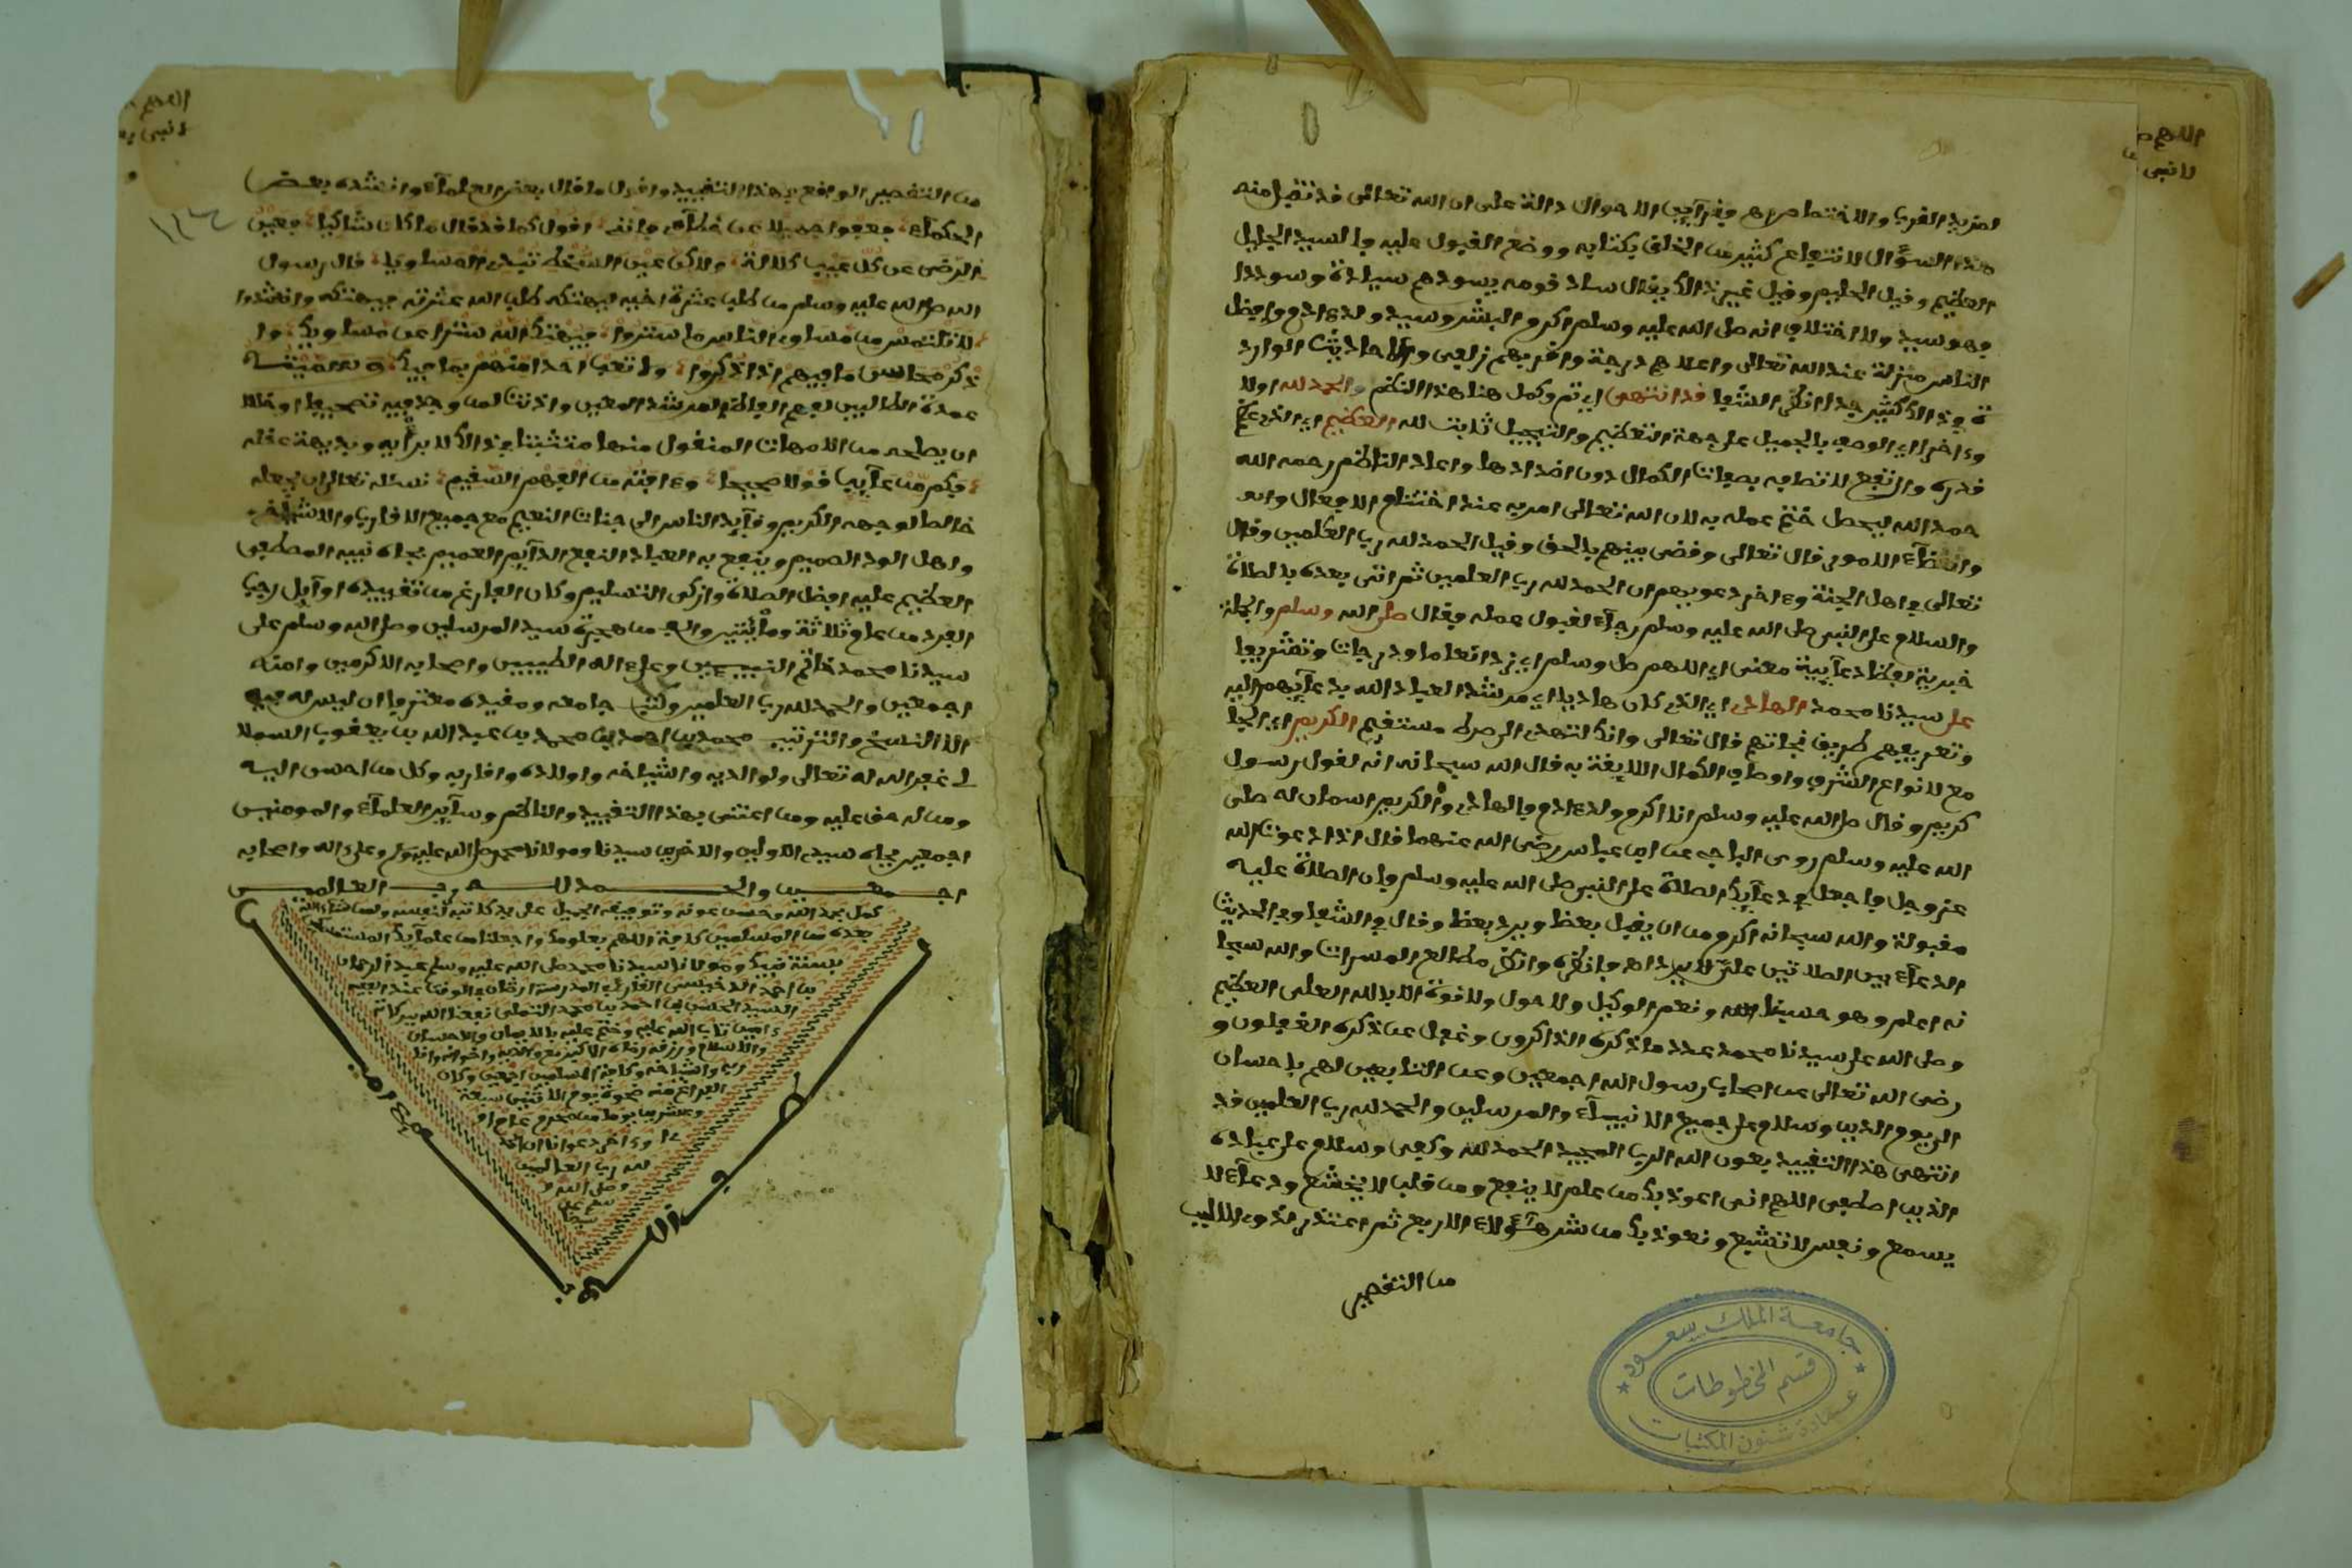 لمزيد القرب والاختصاص وقرآين الاحوال دالة على ان الله تعالى قد تقبل منه
هذا السؤال لانتفاع كثير من الخلق بكتابه ووضع القبول عليه والسيد الجليل
العظيم وقيل الحليم وقيل غير ذالك يقال ساد قومه يسودهم سيادة وسوددا
فهو سيد ولا اختلاف انه صلى الله عليه وسلم اكرم البشر وسيد ولد ءادم وافضل
الناس منزلة عند الله تعالى واعلاهم درجة واقربهم زلفى والاحاديث الوارد
ة في ذالك كثير جدا انظر الشفا قد انتهى اي تم وكمل هنا هذا النظم والحمد لله اولا
وءاخرا اي الوصف بالجميل على جهة التعظيم والتبجيل ثابت لله العظيم اي الذي عظم
قدره وارتفع لاتصافه بصفات الكمال دون اضدادها واعاد الناظم رحمه الله
حمد الله ليحصل ختم عمله به لان الله تعالى امر به عند اختتام الافعال
وانقضآء الامور قال تعالى وقضى بينهم بالحق وقيل الحمد لله رب العلمين وقال
تعالى في اهل الجنة وءاخر دعويهم ان الحمد لله رب العلمين ثم اتى بعده بالصلاة
والسلام على النبي صلى الله عليه وسلم رجآء لقبول عمله فقال صلى الله وسلم والجملة
خبرية لفظا دعآيية معنى اي اللهم صل وسلم اي زد انعاما ودرجات وتشريفا
على سيدنا محمد الهادي اي الذي كان هاديا اي مرشدا لعباد الله بدعآيهم اليه
وتعريفهم طريق نجاتهم قال تعالى وانك لتهدي الى صرط مستقيم الكريم اي الجا
مع لانواع الشرف واوصاف الكمال اللايقة به قال الله سبحانه انه لقول رسول
كريم وقال صلى الله عليه وسلم انا اكرم ولد ءادم والهادي والكريم اسمان له صلى
الله عليه وسلم روى الباجي عن ابن عباس رضى الله عنهما قال اذا دعوت الله
عز وجل فاجعل في دعآيك الصلاة على النبي صلى الله عليه وسلم فان الصلاة عليه
مقبولة والله سبحانه اكرم من ان يقبل بعضا ويرد بعضا وقال في الشفا وفي الحديث
الدعآء بين الصلاتين علي لا يرد اهـ فانظره وانظر مطالع المسرات والله سبحا
نه اعلم وهو حسبنا ونعم الوكيل ولا حول ولا قوة الا بالله العلى العظيم
وصلى الله على سيدنا محمد عدد ما ذكره الذاكرون وغفل عن ذكره الغفلون و
رضى الله تعالى عن اصحاب رسول الله اجمعين وعن التابعين لهم باحسان
الى يوم الدين وسلام على جميع الانبيآء والمرسلين والحمد لله رب العلمين قد
انتهى هذا التقييد بعون الله الرب المجيد الحمد لله وكفى وسلام على عباده
الذين اصطفى اللهم انى اعوذ بك من علم لا ينفع ومن قلب لا يخشع ودعآء لا
يسمع ونفس لا تشبع ونعوذ بك من شر هـؤلاء الاربع ثم اعتذر لذوي الالباب
من التقصير
جامعة الملك سعود
قسم المخطوطات
عمادة شئون المكتبات
من التقصير الواقع في هذا التقييد واقول ما قال بعض العلمآء وانشده بعض
الحكمآء فعفوا جميلا عن خطآي فانني اقول كما قد قال من كان شاكيا فعين
الرضى عن كل عيب كلالة ولاكن عين السخط تبدي المساويا قال رسول
الله صلى الله عليه وسلم من طلب عثرة اخيه ليهتكه طلب الله عثرته فيهتكه وانشدوا
لا تلتمس من مساوى الناس ما ستروا فيهتك الله سترا عن مساويك وا
ذكر محاسن ما فيهم اذا ذكروا ولا تعب احدا منهم بما فيك وسميته
عمدة الطالبين لفهم الفاظ المرشد المعين واذنت لمن وجد فيه تصحيفا او خللا
ان يصلحه من الامهات المنقول منها متثبتا في ذالك لا برأيه وبديهة عقله
فكم من عآيب قولا صحيحا وءافته من الفهم السقيم نسئله تعالى ان يجعله
خالصا لوجهه الكريم وقآيد الناس الى جنات النعيم مع جميع الاقارب والاشياخ
واهل الود الصميم وينفع به العباد النفع الدآيم العميم بجاه نبيه المصطفى
العظيم عليه افضل الصلاة وازكى التسليم وكان الفراغ من تقييده اوآيل رجب
الفرد من عام ثلاثة ومأيتين والف من هجرة سيد المرسلين وصلى الله وسلم على
سيدنا محمد خاتم النبيـيين وعلى ءاله الطيبين واصحابه الاكرمين وامته
اجمعين والحمد لله رب العلمين وكتب جامعه ومقيده معترفا ان ليس له فيه
الا النسخ والترتيب محمد بن احمد بن محمد بن عبد الله بن يعقوب السملا
لى غفر الله له تعالى ولوالديه واشياخه واولاده واقاربه وكل من احسن اليه
ومن له حق عليه ومن اعتنى بهذا التقييد والناظم وسآير العلمآء والمومنين
اجمعين بجاه سيد الاولين والاخرين سيدنا ومولانا محمد صلى الله عليه وسلم وعلى ءاله واصحابه
اجـمعـين والحـمد للـه رب العـالميـن
كمل بحمد الله وحسن عونه وتوفيقه الجميل على يد كاتبه لنفسه ولمن شاء الله
بعده من المسلمين كافة اللهم بعلومك واجعلنا من علمآيك المستمسكين
بسنة نبيك ومولانا سيدنا محمد صلى الله عليه وسلم عبد الرحمان
السيد الحسن بن احمد بن محمد التملى نفعنا الله ببركاته
ءامين تاب الله عليه وختم عليه بالايمان والاحسان
واشياخه وكافة المسلمين اجمعين وكان
الفراغ منه ضحوة يوم الاثنين سبعة
وعشرين يوما من محرم عام
وءاخر دعوانا ان الحمد
لله رب العالمين
وصلى الله